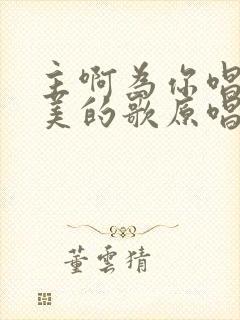 主啊为你唱
美的歌原唱
董云猜